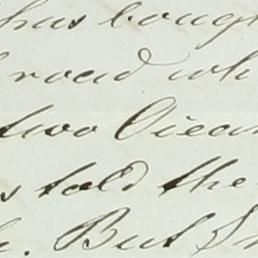 has bough
road wh
two Ocean
s told the
But I